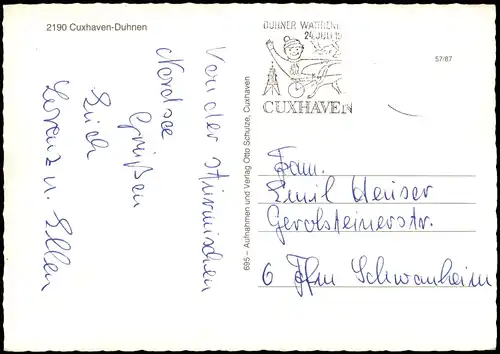 2190 Cuxhaven-Duhnen
Von der stürmischen
Nordsee
Grüßen
Euch
Lorenz u. Ellen
695 – Aufnahmen und Verlag Otto Schulze, Cuxhaven
DUHNER WATTRENN
24. JULI 19
CUXHAVEN
57/87
Fam.
Emil Heuser
Gerolsteinerstr.
6 Ffm Schwanheim